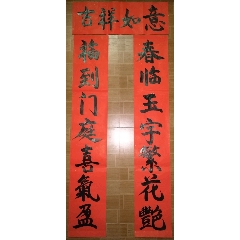 吉祥如意
春临玉宇繁花艷
福到门庭喜氣盈